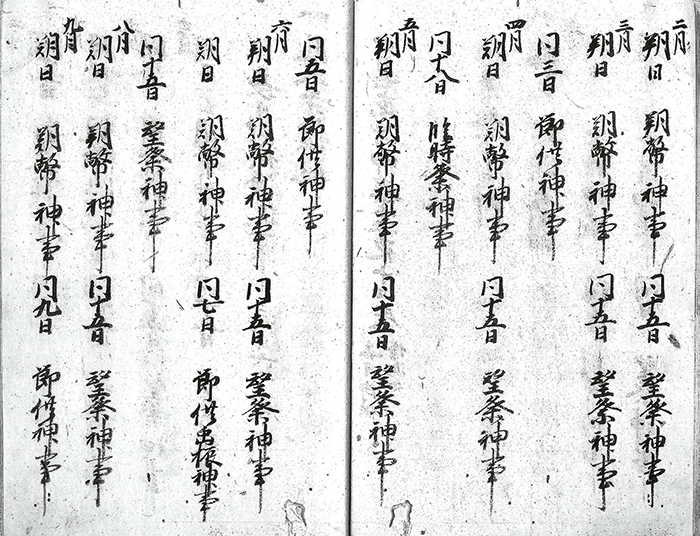 二月 朔日 朔幣神事 同十五日 望祭神事
三月 朔日 朔幣神事 同十五日 望祭神事
同三日 節供神事
四月 朔日 朔幣神事 同十五日 望祭神事
同十八日 臨時祭神事
五月 朔日 朔幣神事 同十五日 望祭神事
同五日 節供神事
六月 朔日 朔幣神事 同十五日 望祭神事
朔日 朔幣神事 同七日 節供 神事
同十五日 望祭神事
八月 朔日 朔幣神事 同十五日 望祭神事
九月 朔日 朔幣神事 同九日 節供神事